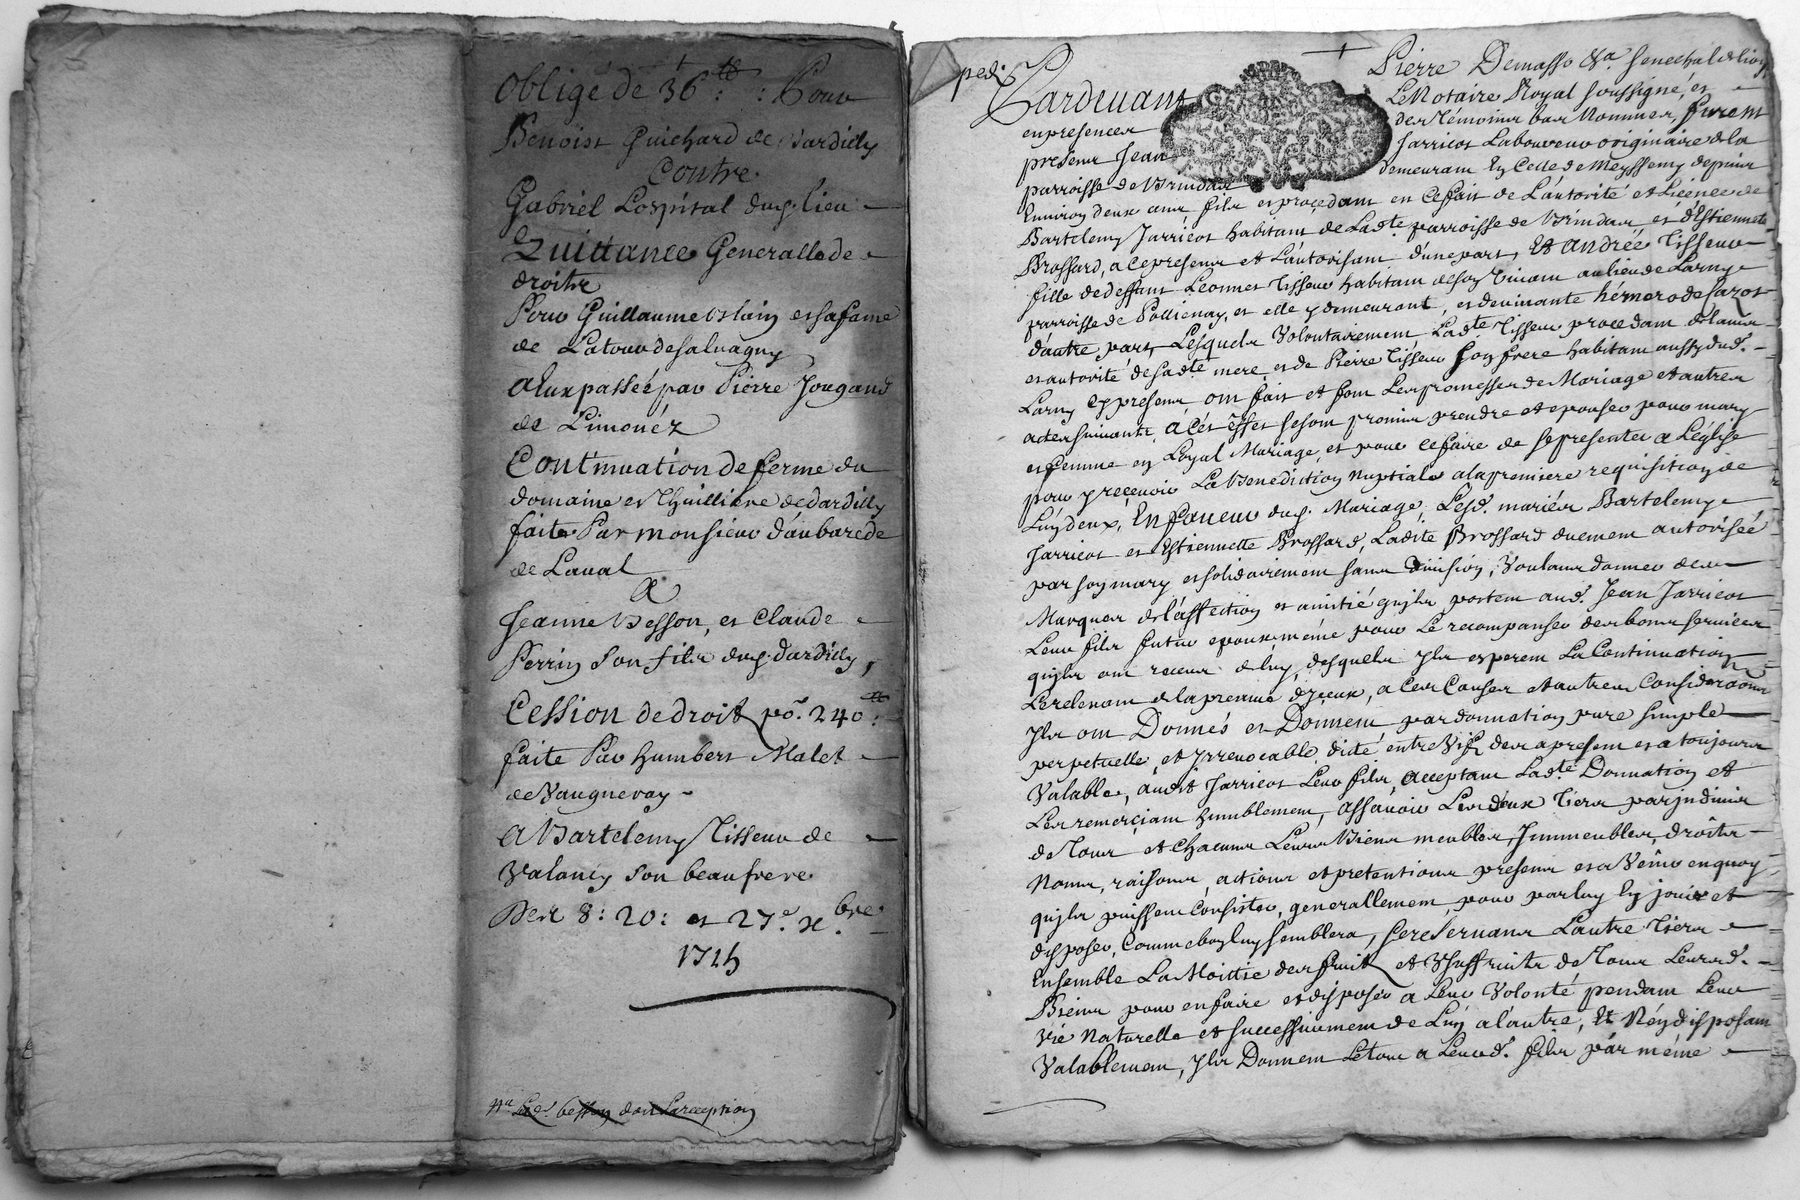 Obligé de 36 tt : Pour
Benoist Guichard de Dardilly
Contre
Gabriël Lospital dud. lieu
Quittance Generalle de
droits
Pour Guillaume Uslain et sa fame
de Latour de salvagny
a Eux passée par Pierre Jougand
de Limonéz
Continuation de ferme du
domaine et Thuilliere de dardilly
faite Par monsieur daubarede
de Laval
A
Jeanne Besson, et Claude
Perrin son fils dud. dardilly,
Cession de droit po.r 240 tt
faite Par humbert Malet
de Vaugneray
A Bartelemy Tisseur de
Valancy son beaufrere
Des 8 : 20 : et 27.e x.bre
1715
Pierre Demasso &a. senechal de lion
ped.
Pardevant Le Notaire Royal soussigné, et
en presences des Temoins bas Nommes, furent
present Jean Jarricot Laboureur originaire de la
parroisse de Brindas demeurant En Celle de Meyssemy depuis
Environ deux ans, fils et proçedant en Ce fait de L'autorité et Licénce de
Bartelemy Jarricot habitant de Lad.te parroisse de Brindas et d'Estiennette
Brossard, a Ce present et L'autorisant d'une part, Et Andrée Tisseur
fille de deffunt Leonnet Tisseur habitant de son Vivant au lieu de Larny
parroisse de Pollienay, et elle y demeurant, et de
d'autre part, Lesquels Volontairement, Lad.te Tisseur procedant de l'avis
et autorité de sad.te mere et de Pierre Tisseur son frere habitant aussy dud.
Larny Cy present, ont fait et font Les promesses de Mariage et autres
actes suivants, a Cét effet se sont promis prendre et epouser pour mary
et femme en Loyal Mariage, et pour ce faire de se presenter a Léglise
pour y reçevoir La Benediction Nuptiale a la premiere requisition de
Lun d'eux, En faveur dud. Mariage, Lesd. mariés Bartelemy
Jarricot et Estiennette Brossard, Ladite Brossard duement autorisée
par son mary et solidairement sans division, Voulans donner des
Marques de l'affection et amitié quils portent aud. Jean Jarricot
Leur fils futur epoux, méme pour Le recompanser des bons services
quils ont receus de luy, desquels Ils esperent La Continuation
Les relevant de la preuve d'Iceux, a Ces Causes et autres Considerations
Ils ont Donnés et Donnent par donnation pure simple
perpetuelle, et Irrevocable dicte entre Vifs des a present et a toujours
Valable, audit Jarricot Leur fils, acceptant Lad.te Donnation et
Les remerçiant humblement, assavoir Les deux Tiers par indivis
de Tous et Chacuns Leurs Biens meubles, Immeubles, droits
Noms, raisons, actions et pretentions presens et a Vénir en quoy
quils puissent Consister, generallement, pour par luy En jouir et
disposer, Comme bon luy semblera, se reservans L'autre Tiers
Ensemble La Moittie des fruits et Usuffruits de Tous Leursd.
Biens pour en faire et disposer a Leur Volonté pendant Leur
Vie Naturelle et successivement de Lun a l'autre, Et N'en disposant
Valablement, Ils Donnent Le tout a Leurd. fils par méme